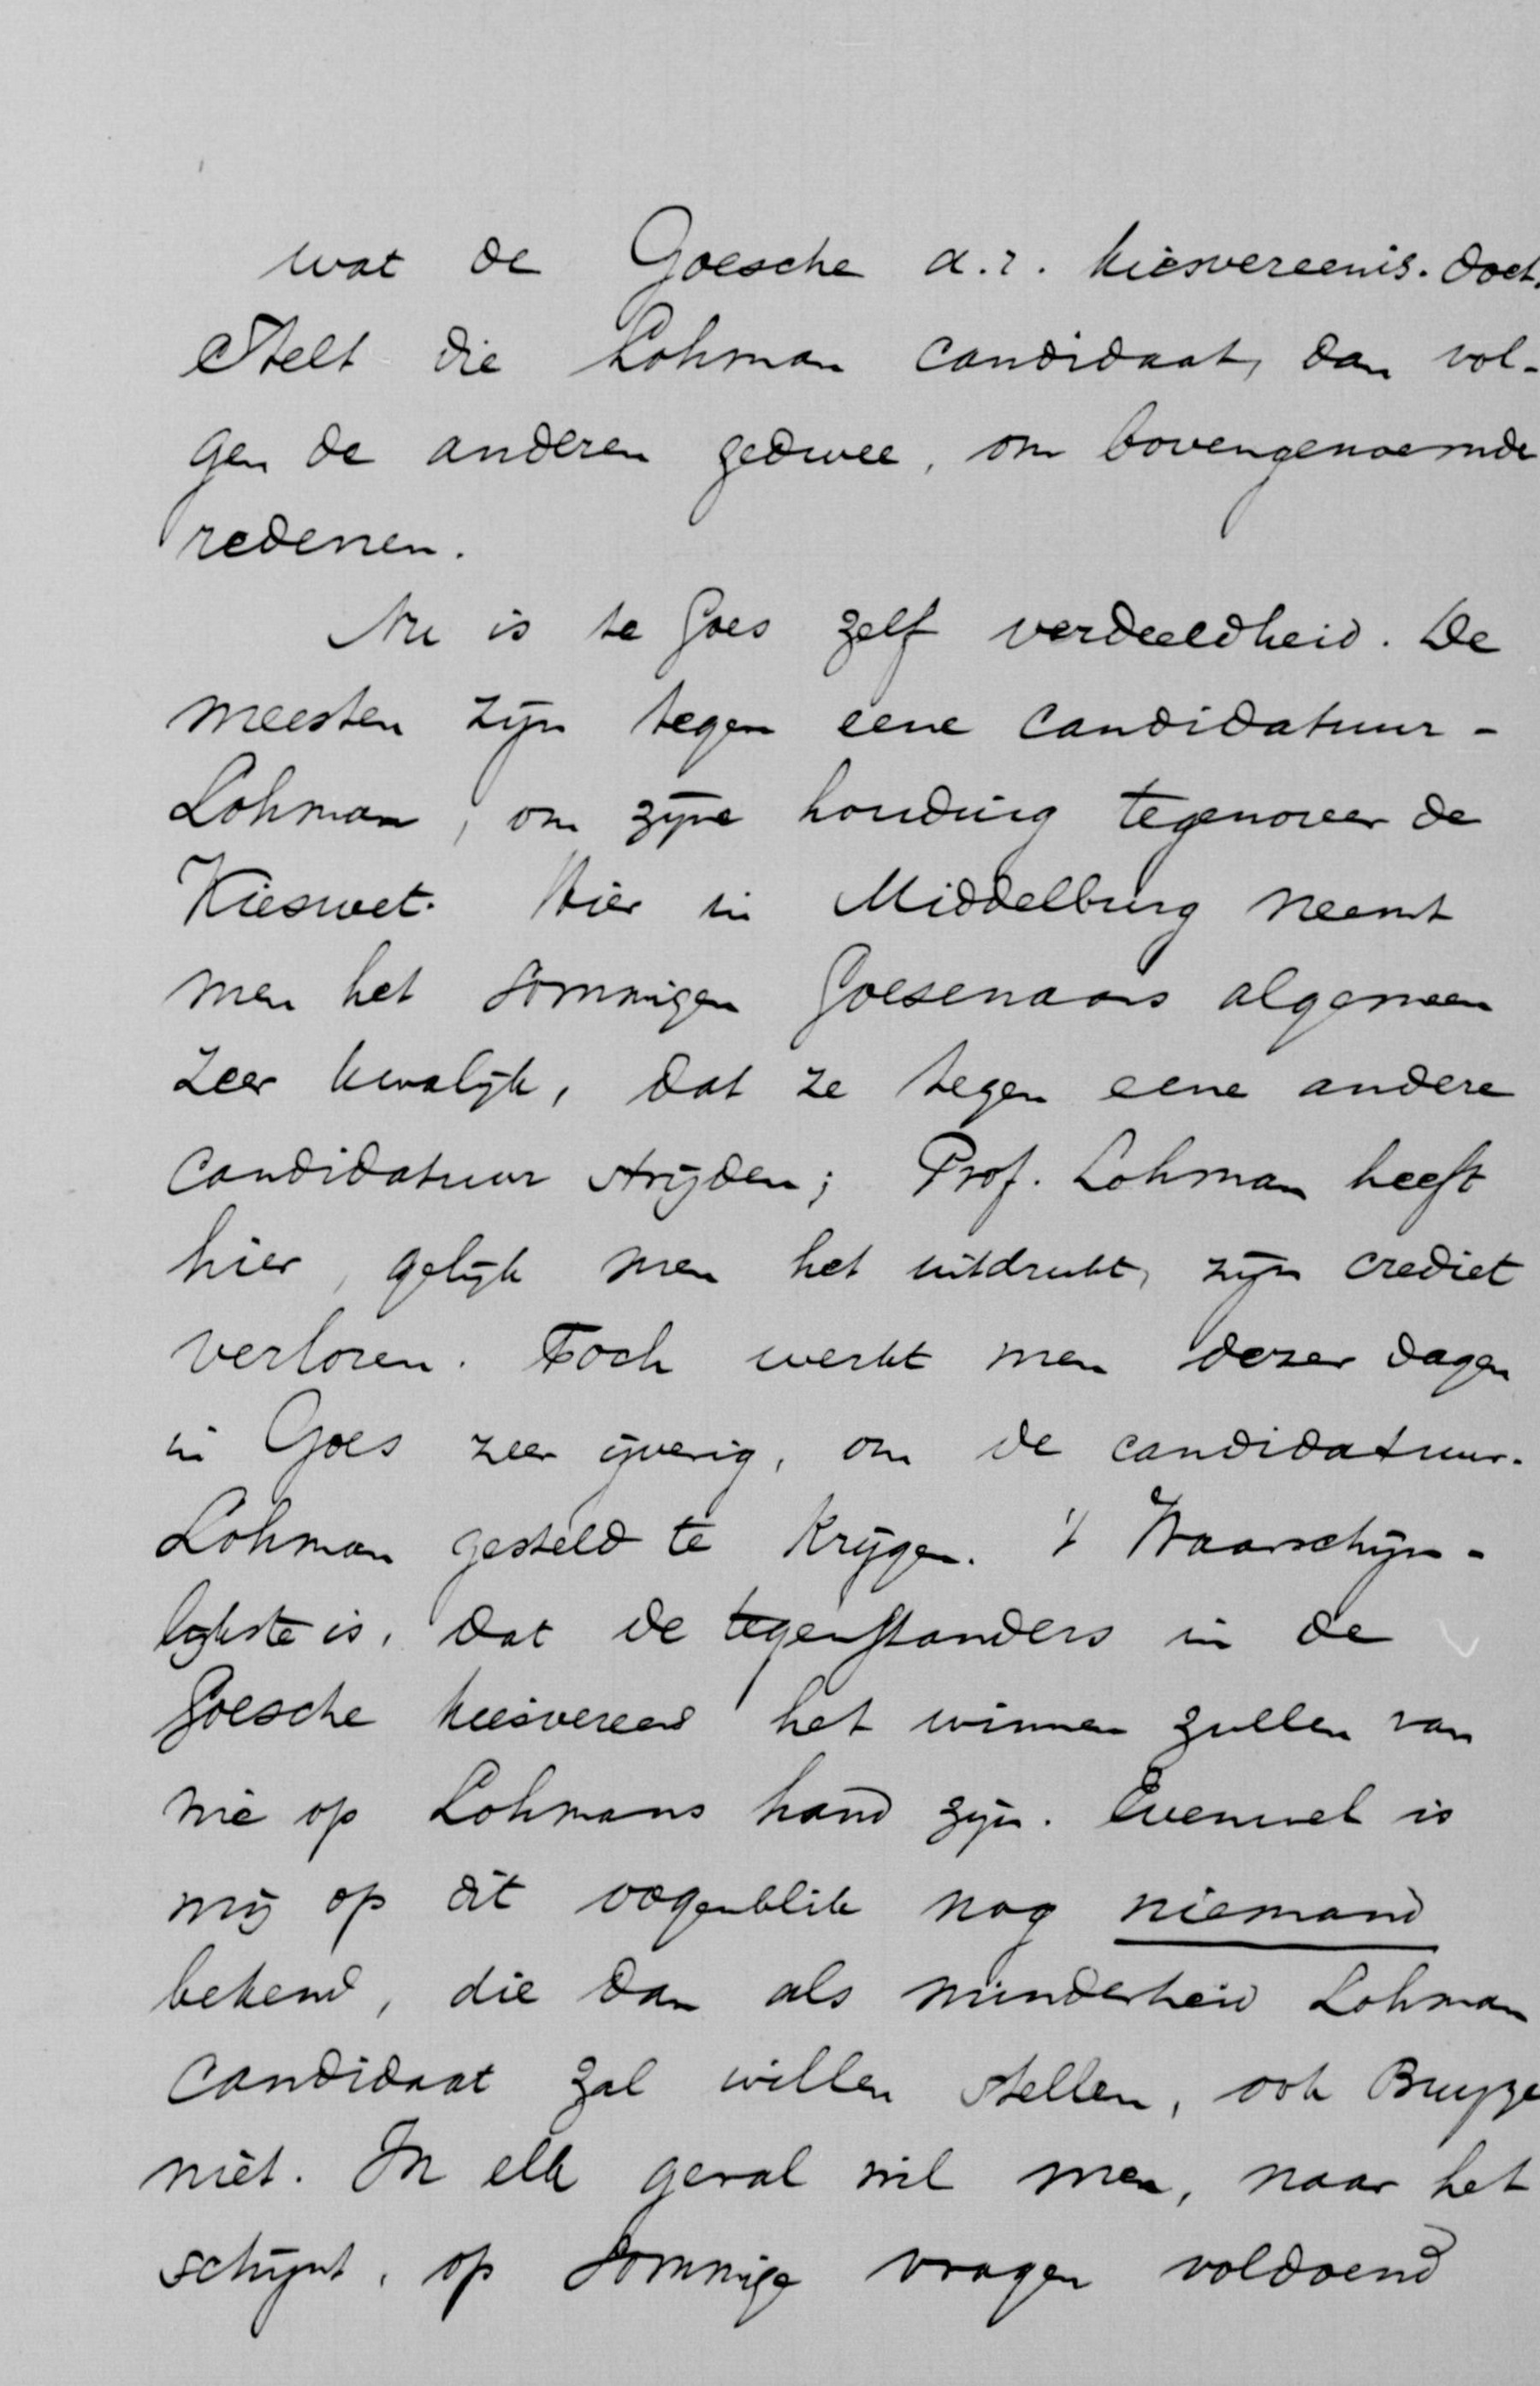 wat de Goesche a.r. kiesvereenis. doet.
Stelt die Lohman candidaat, dan vol-
gen de anderen gedwee, om bovengenoemde
redenen.
Nu is te Goes zelf verdeeldheid. De
meesten zijn tegen eene candidatuur-
Lohman, om zijne houding tegenover de
Kieswet. Hier in Middelburg neemt
men het sommigen Goesenaars algemeen
zeer kwalijk, dat ze tegen eene andere
candidatuur strijden; Prof. Lohman heeft
hier, gelijk men het uitdrukt, zijn crediet
verloren. Toch werkt men dezer dagen
in Goes zeer ijverig, om de candidatuur-
Lohman gesteld te krijgen. 't Waarschijn-
lijkste is, dat de tegenstanders in de
Goesche kiesvereen het winnen zullen van
wie op Lohmans hand zijn. Evenwel is
mij op dit oogenblik nog niemand
bekend, die dan als minderheid Lohman
candidaat zal willen stellen, ook Bruyze
niet. In elk geval wil men, naar het
schijnt, op sommige vragen voldoend